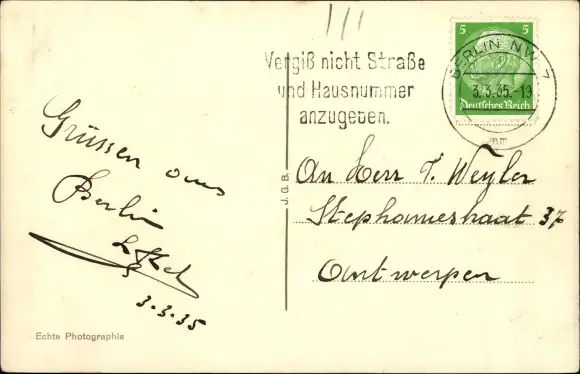 Vergiß nicht Straße
und Hausnummer
anzugeben.
BERLIN NW 7
3.3.35.-19
mm
5 5
Deutsches Reich
Grüssen aus
Berlin
3.3.35
An Herr J. Weyler
Stephaniestraat 37
Antwerpen
J.G.B.
Echte Photographie